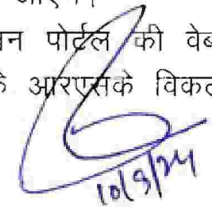 न पोर्टल की वेब
के आरएसके विकल
10/9/24